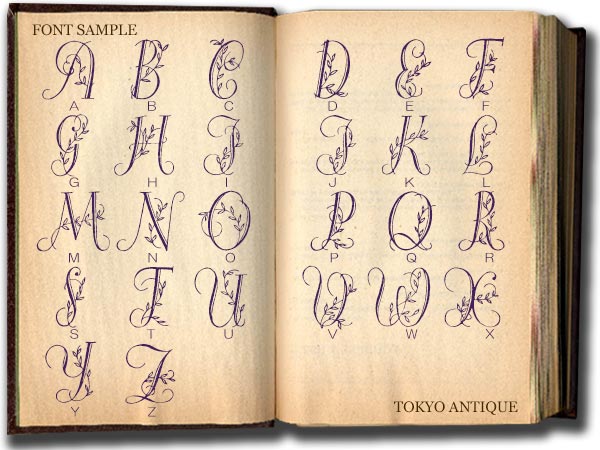 FONT SAMPLE
A B C D E F
A B C D E F
G H I J K L
G H I J K L
M N O P Q R
M N O P Q R
S T U V W X
S T U V W X
Y Z
Y Z
TOKYO ANTIQUE